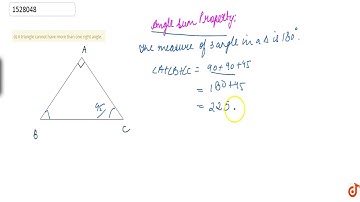 1528048
(iii) A triangle cannot have more than one right angle.
Angle Sum Property:
the measure of 3 angle in a Δ is 180°.
A
∠A+∠B+∠C = 90+90+45
= 180+45
45
= 225.
B
C